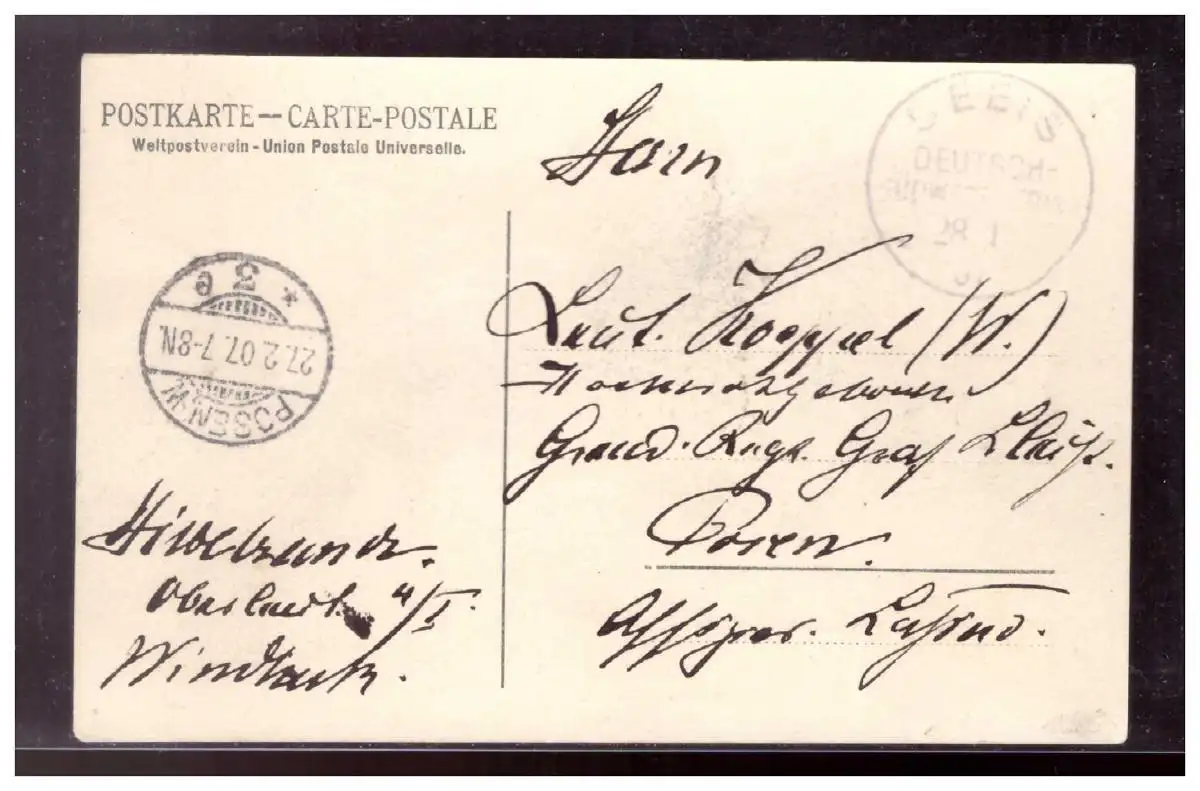 POSTKARTE — CARTE-POSTALE
Weltpostverein - Union Postale Universelle.
SEEIS
DEUTSCH-
28 1
* 2 e
27.2.07.7-8N.
POSEN.W.
Herrn
Leut. Koeppel (W.)
Hochwohlgeboren
Grend. Regt. Graf Kleist.
Posen.
Offizier. Kasino.
Hildebrandt.
Oberleut. 4/I.
Windhuk.